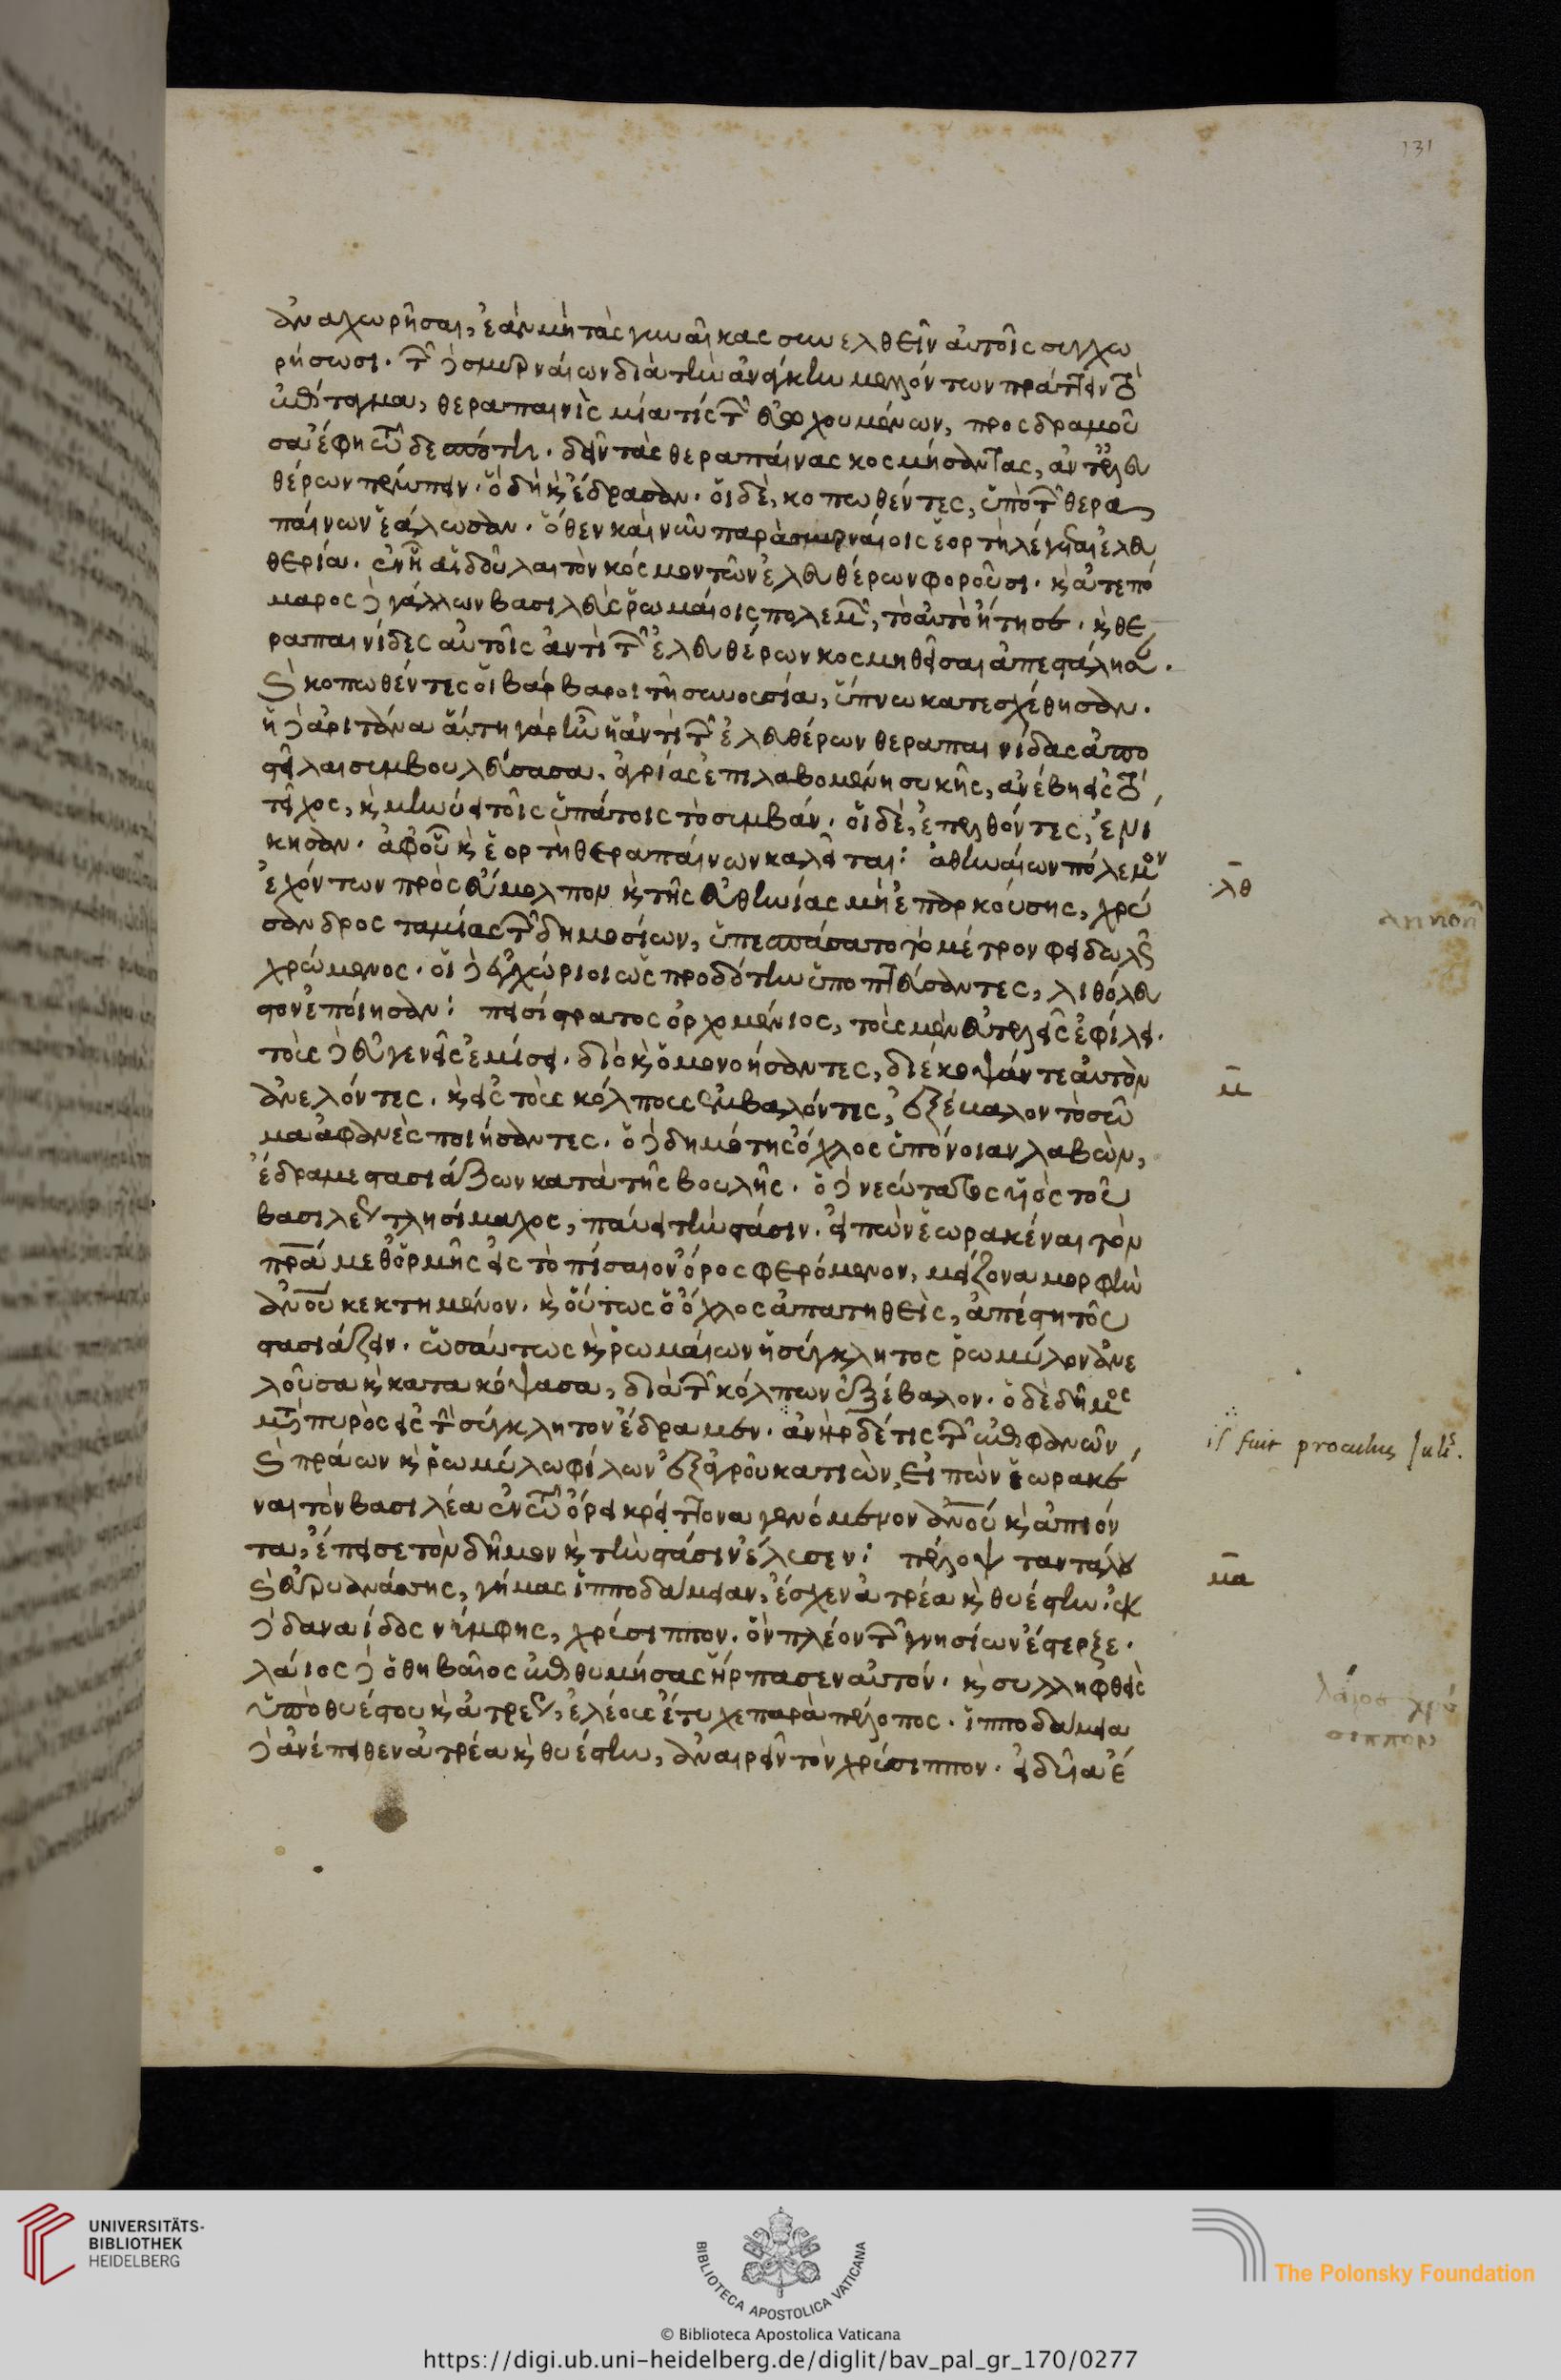 131
ἀναχωρῆσαι, ἐὰν μὴ τὰς γυναῖκας συνελθεῖν αὐτοῖς συγχω
ρήσωσι. τῶν δὲ σμυρναίων διὰ τὴν ἀνάγκην μελλόντων πράττειν τὸ
ἐπίταγμα, θεραπαινὶς μία τίς τῶν εὐσχουμένων, προσδραμοῦ
σα ἔφη τῶ δεσπότη. δεῖν τὰς θεραπαίνας κοσμήσαντας, ἀντ' ἐλευ
θέρων πέμπειν. ὃ δὴ καὶ ἔδρασαν. οἱ δὲ, κοπωθέντες, ὑπὸ τῶν θερα
παίνων ἑάλωσαν. ὅθεν καὶ νῦν παρὰ σμυρναίοις ἑορτὴ λέγεται ἐλευ
θερία. ἐν ἧ αἱ δοῦλαι τὸν κόσμον τῶν ἐλευθέρων φοροῦσι. καὶ ἀτεπό
μαρος δὲ γάλλων βασιλεὺς ῥωμαίοις πολεμῶν, τὸ αὐτὸ ἤτησε. καὶ θε
ραπαινίδες αὐτοῖς ἀντὶ τῶν ἐλευθέρων κοσμηθεῖσαι ἀπεστάλησαν.
καὶ κοπωθέντες οἱ βάρβαροι τῆ συνουσία, ὕπνω κατεσχέθησαν.
ἡ δὲ ἀριτάνα αὕτη γὰρ ἦν ἡ ἀντὶ τῶν ἐλευθέρων θεραπαινίδας ἀπο
στεῖλαι συμβουλεύσασα, ἀγρίας ἐπιλαβομένη συκῆς, ἀνέβη εἰς τὸ
τεῖχος, καὶ μηνύει τοῖς ὑπάτοις τὸ συμβάν. οἱ δὲ, ἐπελθόντες, ἐνί
κησαν. ἀφ' οὗ καὶ ἑορτὴ θεραπαίνων καλεῖται: ἀθηναίων πόλεμον
ἐχόντων πρὸς εὔμολπον καὶ τῆς εὐθηνίας μὴ ἐπαρκούσης, χρύ
σανδρος ταμίας τῶν δημοσίων, ὑπεσπάσατο τὸ μέτρον φειδωλῶς
χρώμενος. οἱ δὲ ἐγχώριοι ὡς προδότην ὑποπτεύσαντες, λιθόλευ
στον ἐποίησαν: πεισίστρατος ὀρχομένιος, τοὺς μὲν εὐτελεῖς ἐφίλει.
τοὺς δὲ εὐγενεῖς ἐμίσει. διὸ καὶ ὁμονοήσαντες, διέκοψάν τε αὐτὸν
ἀνελόντες. καὶ εἰς τοὺς κόλπους ἐμβαλόντες, ἐξέβαλον τὸ σῶ
μα ἀφανὲς ποιήσαντες. ὁ δὲ δημότης ὄχλος ὑπόνοιαν λαβὼν,
ἔδραμε στασιάζων κατὰ τῆς βουλῆς. ὁ δὲ νεώτατος υἱὸς τοῦ
βασιλέως τλησίμαχος, παύει τὴν στάσιν. εἰπὼν ἑωρακέναι τὸν
πατέρα μεθ' ὁρμῆς εἰς τὸ πίσαιον ὄρος φερόμενον, μείζονα μορφὴν
ἀνθρώπου κεκτημένον. καὶ οὕτως ὁ ὄχλος ἀπατηθεὶς, ἀπέστη τοῦ
στασιάζειν. ὡσαύτως καὶ ῥωμαίων ἡ σύγκλητος ῥωμύλον ἀνε
λοῦσα καὶ κατακόψασα, διὰ τῶν κόλπων ἐξέβαλον. ὁ δὲ δῆμος
μετὰ πυρὸς εἰς τὴν σύγκλητον ἔδραμεν. ἀνὴρ δέ τις τῶν ἐπιφανῶν,
καὶ πράων καὶ ῥωμύλω φίλων ἐξ ἀγροῦ κατιὼν, εἰπὼν ἑωρακέ
ναι τὸν βασιλέα ἐν τῶ ὄρει κρείττονα γενόμενον ἀνθρώπου καὶ ἀπιόν
τα, ἔπεισε τὸν δῆμον καὶ τὴν στάσιν ἔλυσεν: πέλοψ ταντάλου
καὶ εὐρυανάσσης, γήμας ἱπποδάμειαν, ἔσχεν ἀτρέα καὶ θυέστην. ἐκ
δὲ δαναίδος νύμφης, χρύσιππον. ὃν πλέον τῶν γνησίων ἔστερξε.
λάιος δὲ ὁ θηβαῖος ἐπιθυμήσας ἥρπασεν αὐτόν. καὶ συλληφθεὶς
ὑπὸ θυέστου καὶ ἀτρέως, ἐλέους ἔτυχε παρὰ πέλοπος. ἱπποδάμεια
δὲ ἀνέπειθεν ἀτρέα καὶ θυέστην, ἀναιρεῖν τὸν χρύσιππον. εἰδυῖα ἔ
λθ
μ
is fuit proculus Juls.
μα
λάιος χρύ
σιππον
UNIVERSITÄTS-
BIBLIOTHEK
HEIDELBERG
BIBLIOTECA APOSTOLICA VATICANA
The Polonsky Foundation
© Biblioteca Apostolica Vaticana
https://digi.ub.uni-heidelberg.de/diglit/bav_pal_gr_170/0277